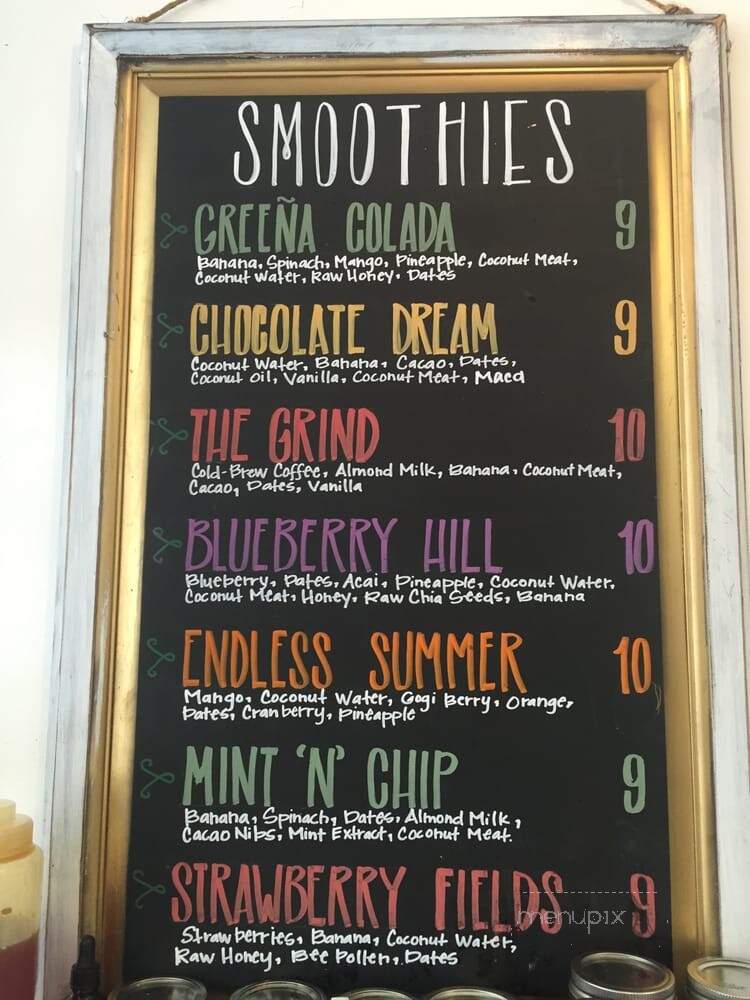 SMOOTHIES
GREEÑA COLADA 9
Banana, Spinach, Mango, Pineapple, Coconut Meat,
Coconut Water, Raw Honey, Dates
CHOCOLATE DREAM 9
Coconut Water, Banana, Cacao, Dates,
Coconut Oil, Vanilla, Coconut Meat, Maca
THE GRIND 10
Cold-Brew Coffee, Almond Milk, Banana, Coconut Meat,
Cacao, Dates, Vanilla
BLUEBERRY HILL 10
Blueberry, Dates, Acai, Pineapple, Coconut Water,
Coconut Meat, Honey, Raw Chia Seeds, Banana
ENDLESS SUMMER 10
Mango, Coconut Water, Gogi Berry, Orange,
Dates, Cranberry, Pineapple
MINT 'N' CHIP 9
Banana, Spinach, Dates, Almond Milk,
Cacao Nibs, Mint Extract, Coconut Meat.
STRAWBERRY FIELDS 9
menupix
Strawberries, Banana, Coconut Water,
Raw Honey, Bee Pollen, Dates